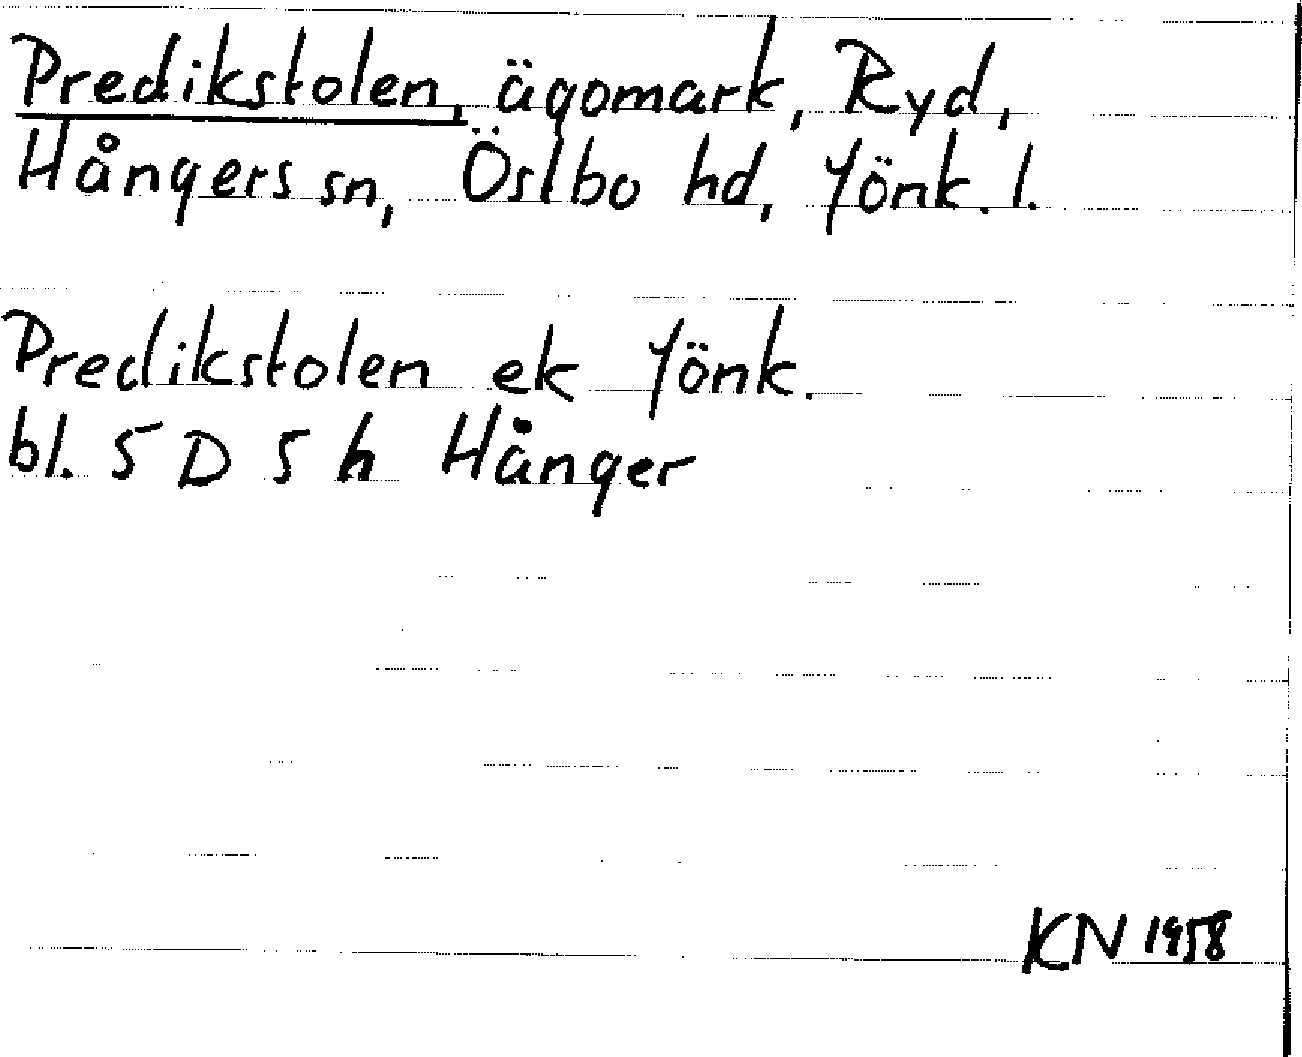 Predikstolen, ägomark, Ryd,
Hångers sn, Östbo hd, Jönk. l.
Predikstolen ek Jönk.
bl. 5 D 5 h Hånger
KN 1958